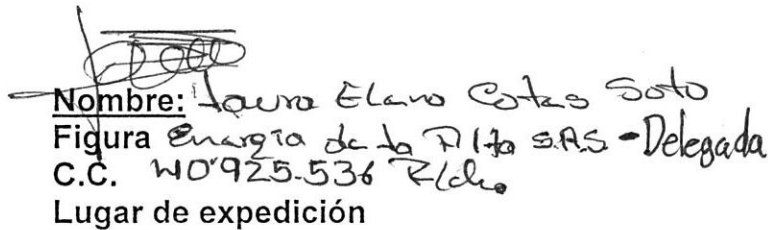 Nombre: Laura Elena Soto
Figura Energía de la S.A.S. - Delegada
C.C. 925.536
Lugar de expedición